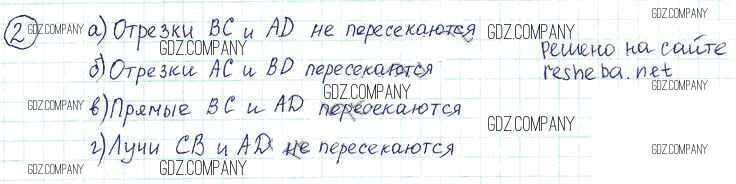 2 а) Отрезки BC и AD не пересекаются
GDZ.COMPANY GDZ.COMPANY GDZ.COMPANY GDZ.COMPANY
решено на сайте
resheba.net
б) Отрезки AC и BD пересекаются
GDZ.COMPANY GDZ.COMPANY
в) Прямые BC и AD пересекаются
GDZ.COMPANY GDZ.COMPANY
г) Лучи CB и AD не пересекаются
GDZ.COMPANY GDZ.COMPANY GDZ.COMPANY